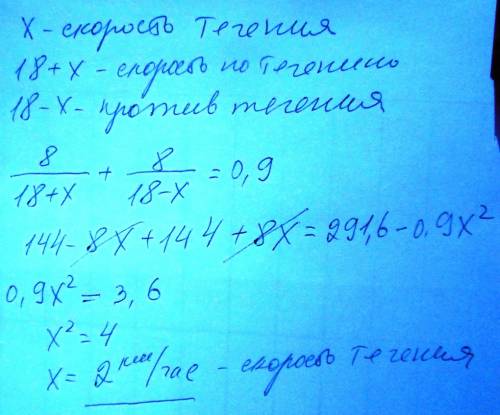 x - скорость течения
18+x - скорость по течению
18-x - против течения
8/(18+x) + 8/(18-x) = 0,9
144 - 8x + 144 + 8x = 291,6 - 0,9x²
0,9x² = 3,6
x² = 4
x = 2 км/час - скорость течения